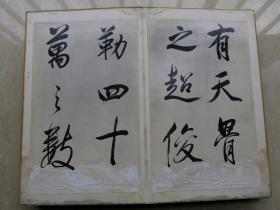 有天骨
之超俊
勒四十
萬之數